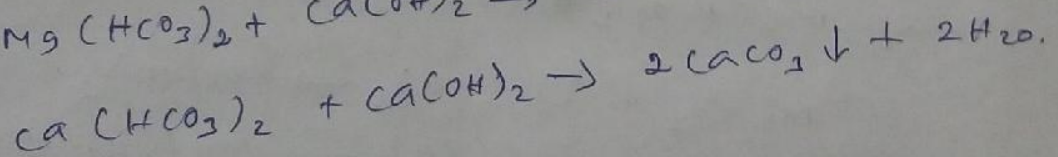 Mg (HCO3)2 + Ca(OH)2 →
Ca (HCO3)2 + Ca(OH)2 → 2CaCO3 ↓ + 2H2O.